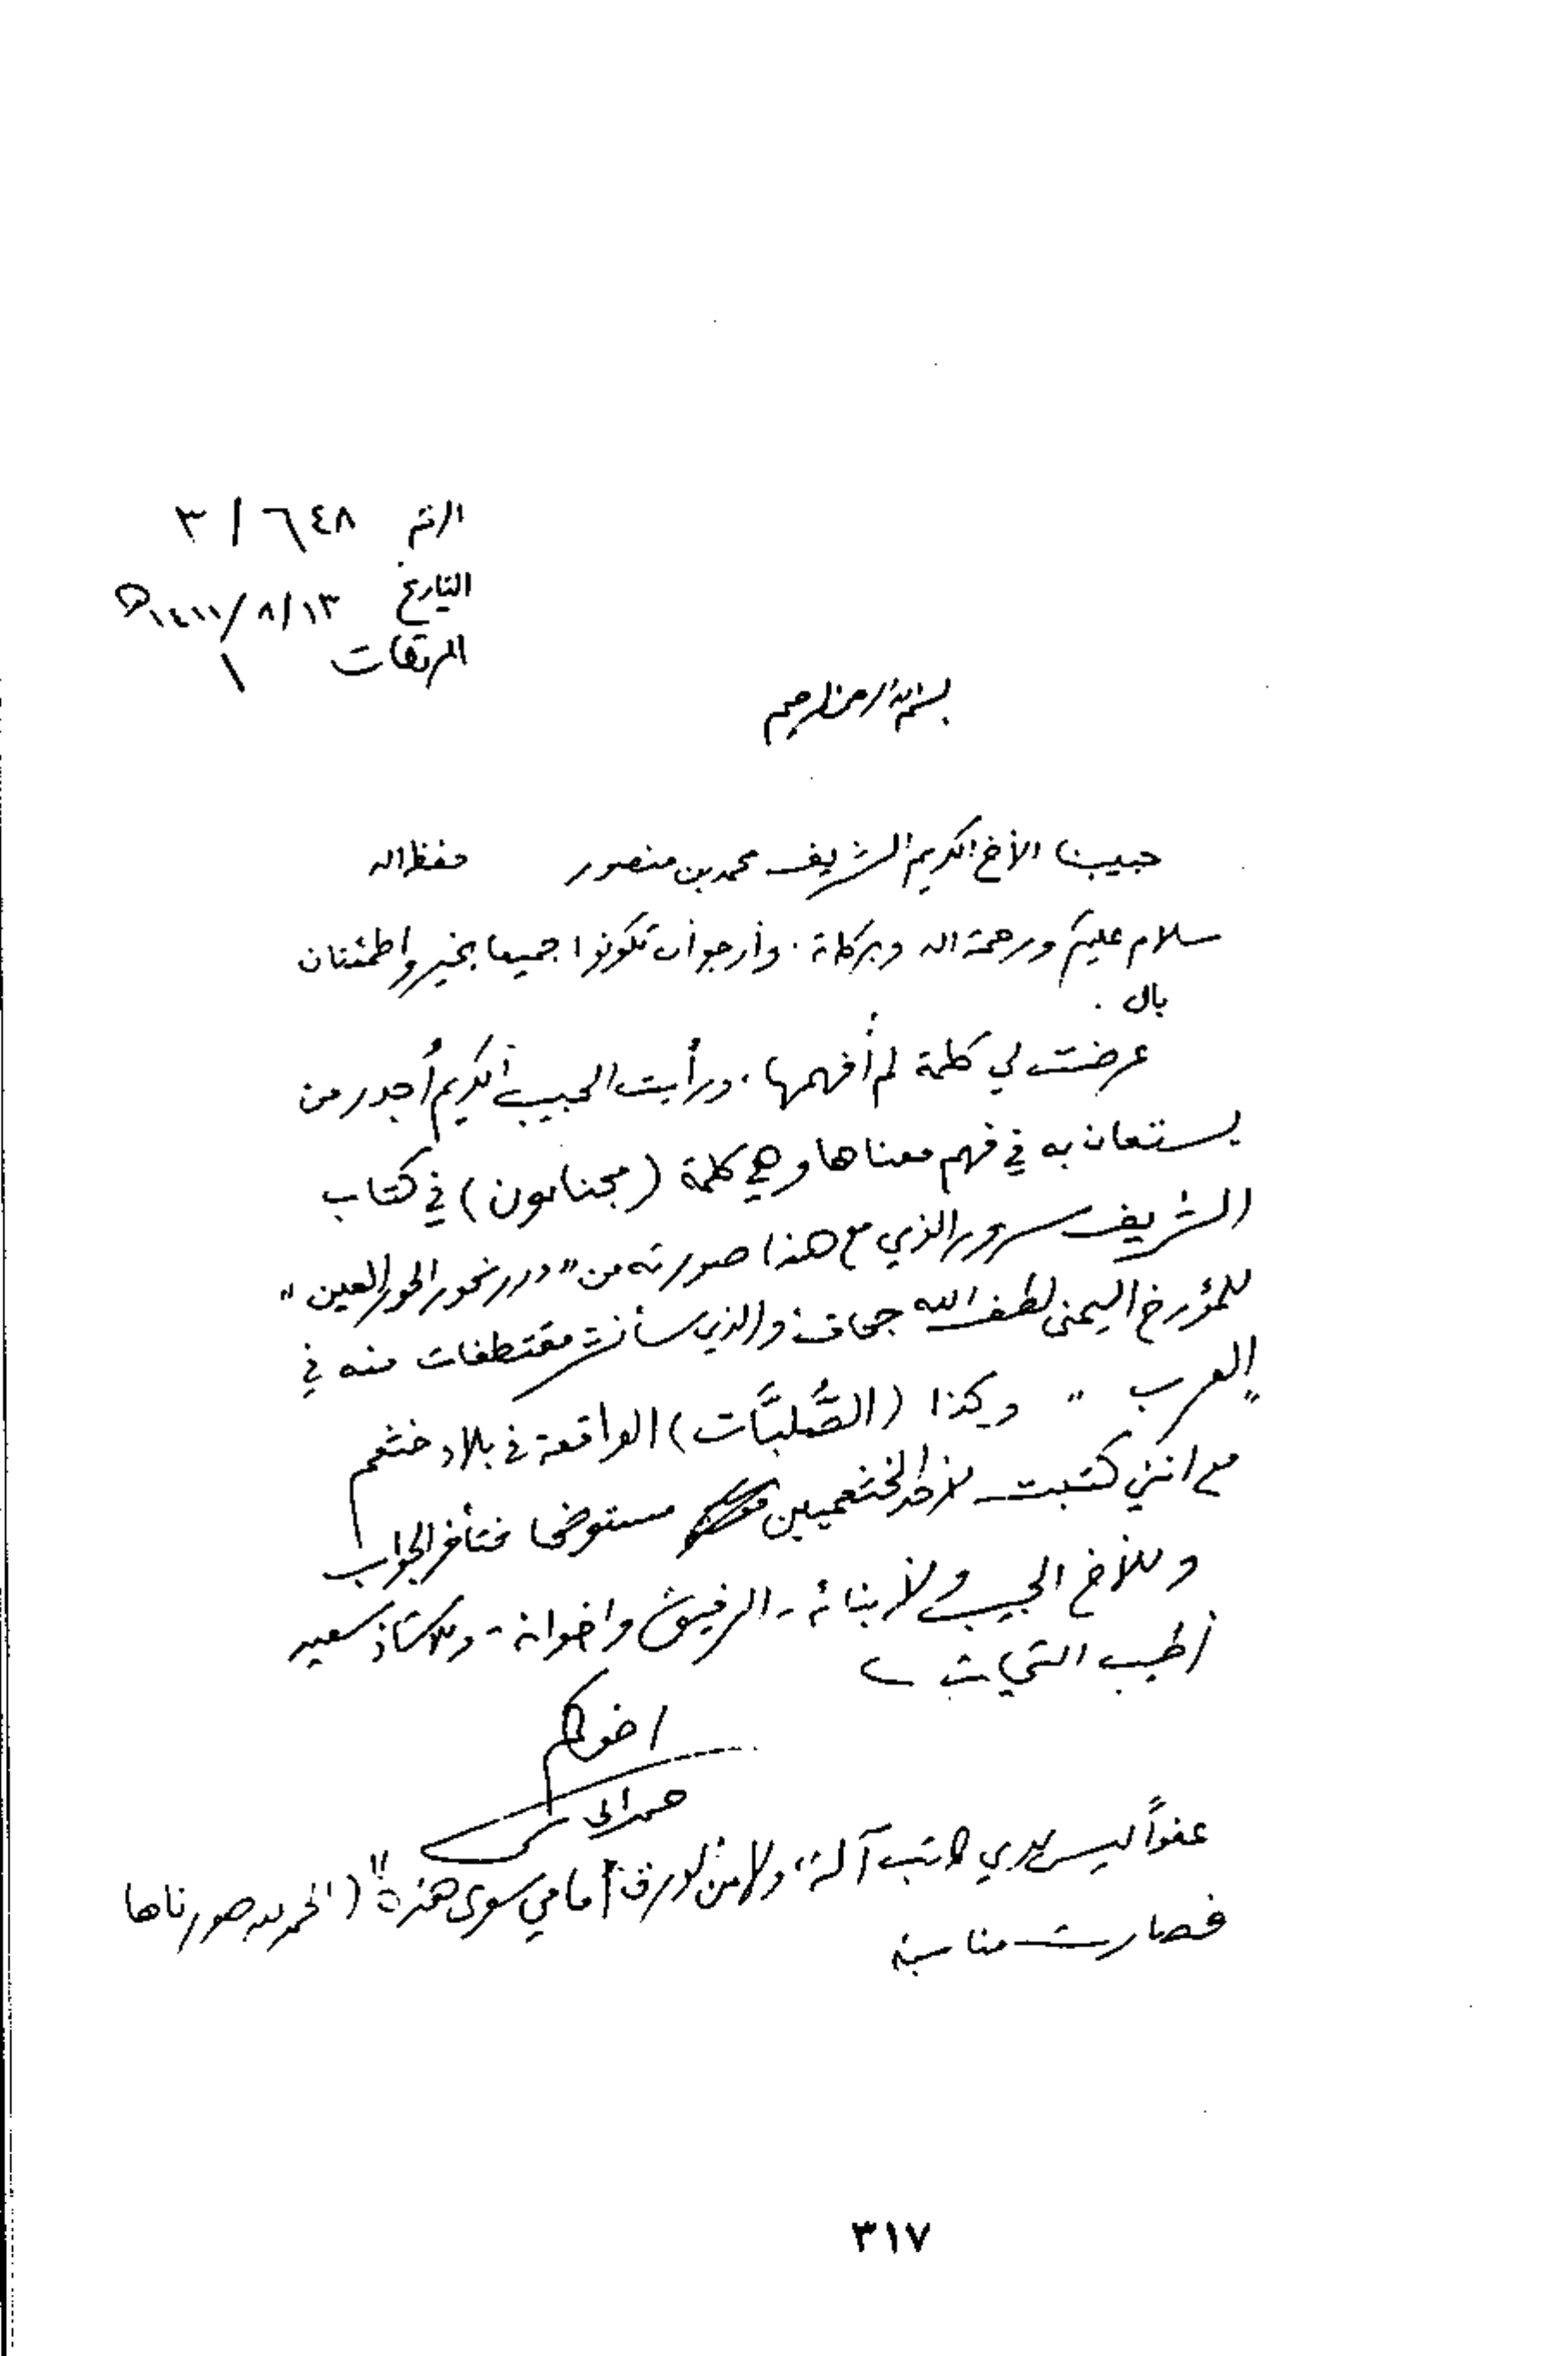 الرقم ٦٤٨ / ٣
التاريخ ١٣ / ٨ / ١٤١١ھ
المرفقات ١
بسم الله الرحمن الرحيم
حبيبنا الأخ الكريم الشريف محمد بن منصور حفظه الله
سلام عليكم ورحمة الله وبركاته . وأرجو أن تكونوا جميعا بخير واطمئنان
بال .
عرضت لي كلمة لم أفهمها ، ورأيت الحبيب الكريم أجدر من
يستعان به في فهم معناها وهي كلمة ( ) في كتاب
الشريف سرور الذي مع هذا صورته من " درر نحور الحور العين "
للمؤرخ اليمني لطف الله جحاف ، والذي سأنشر مقتطفات منه في
" العرب " وكذا ( الصُّلبيَّات ) الواقعة في بلاد خثعم
مع انني كتبت لأحد الخثعميين مستوضحا فتأخر الجواب
وللأخ الحبيب ولأبنائه - الرفيق واخوانه - وللأستاذ سعيد
أطيب التحيات
اخوكم
حمد الجاسر
عفواً ليس لدي كاتب آلة ، ولا من الورق أمامي سوى هذه !! ( الحمد لله صورناها
فصارت مناسبة
٣١٧